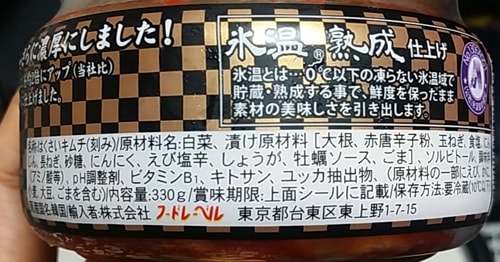 らに濃厚にしました！
倍にアップ（当社比）
上げました。
氷温®熟成仕上げ
氷温とは…0℃以下の凍らない氷温域で
貯蔵・熟成する事で、鮮度を保ったまま
素材の美味しさを引き出します。
名称:はくさいキムチ(刻み)/原材料名:白菜、漬け原材料［大根、赤唐辛子粉、玉ねぎ、食塩、にん
じん、長ねぎ、砂糖、にんにく、えび塩辛、しょうが、牡蠣ソース、ごま］、ソルビトール、調味料
(アミノ酸等)、pH調整剤、ビタミンB₁、キトサン、ユッカ抽出物、(原材料の一部にえび、
小麦、大豆、ごまを含む)/内容量:330g/賞味期限:上面シールに記載/保存方法:要冷蔵(10℃以下)
原産国名:韓国/輸入者:株式会社 フードレーベル 東京都台東区東上野1-7-15